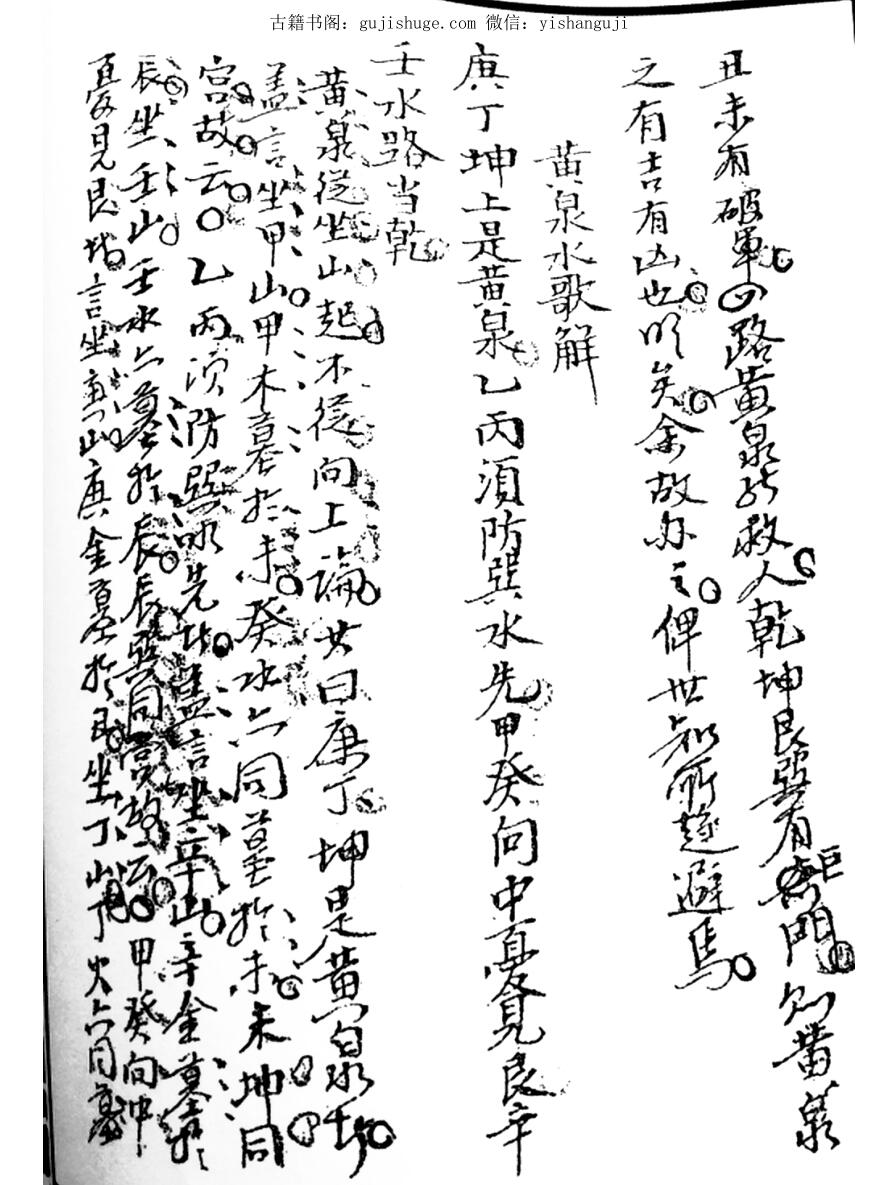 古籍书阁：gujishuge.com 微信：yishanguji
丑未有破軍四路黄泉能救人乾坤艮巽有巨門則黄泉
之有吉有凶也明矣余故办之俾世知所趨避焉
黄泉水歌解
庚丁坤上是黄泉乙丙須防巽水先甲癸向中憂見艮辛
壬水路当乾
黄泉從坐山起不從向上論其曰庚丁坤是黄泉者
盖言坐甲山甲木墓於未癸水亦同墓於未未坤同
宫故云乙丙須防巽水先者盖言坐辛山辛金墓於
辰坐壬山壬水亦墓於辰辰巽同宫故云甲癸向中
憂見艮者言坐庚山庚金墓於丑坐丁山丁火亦同墓